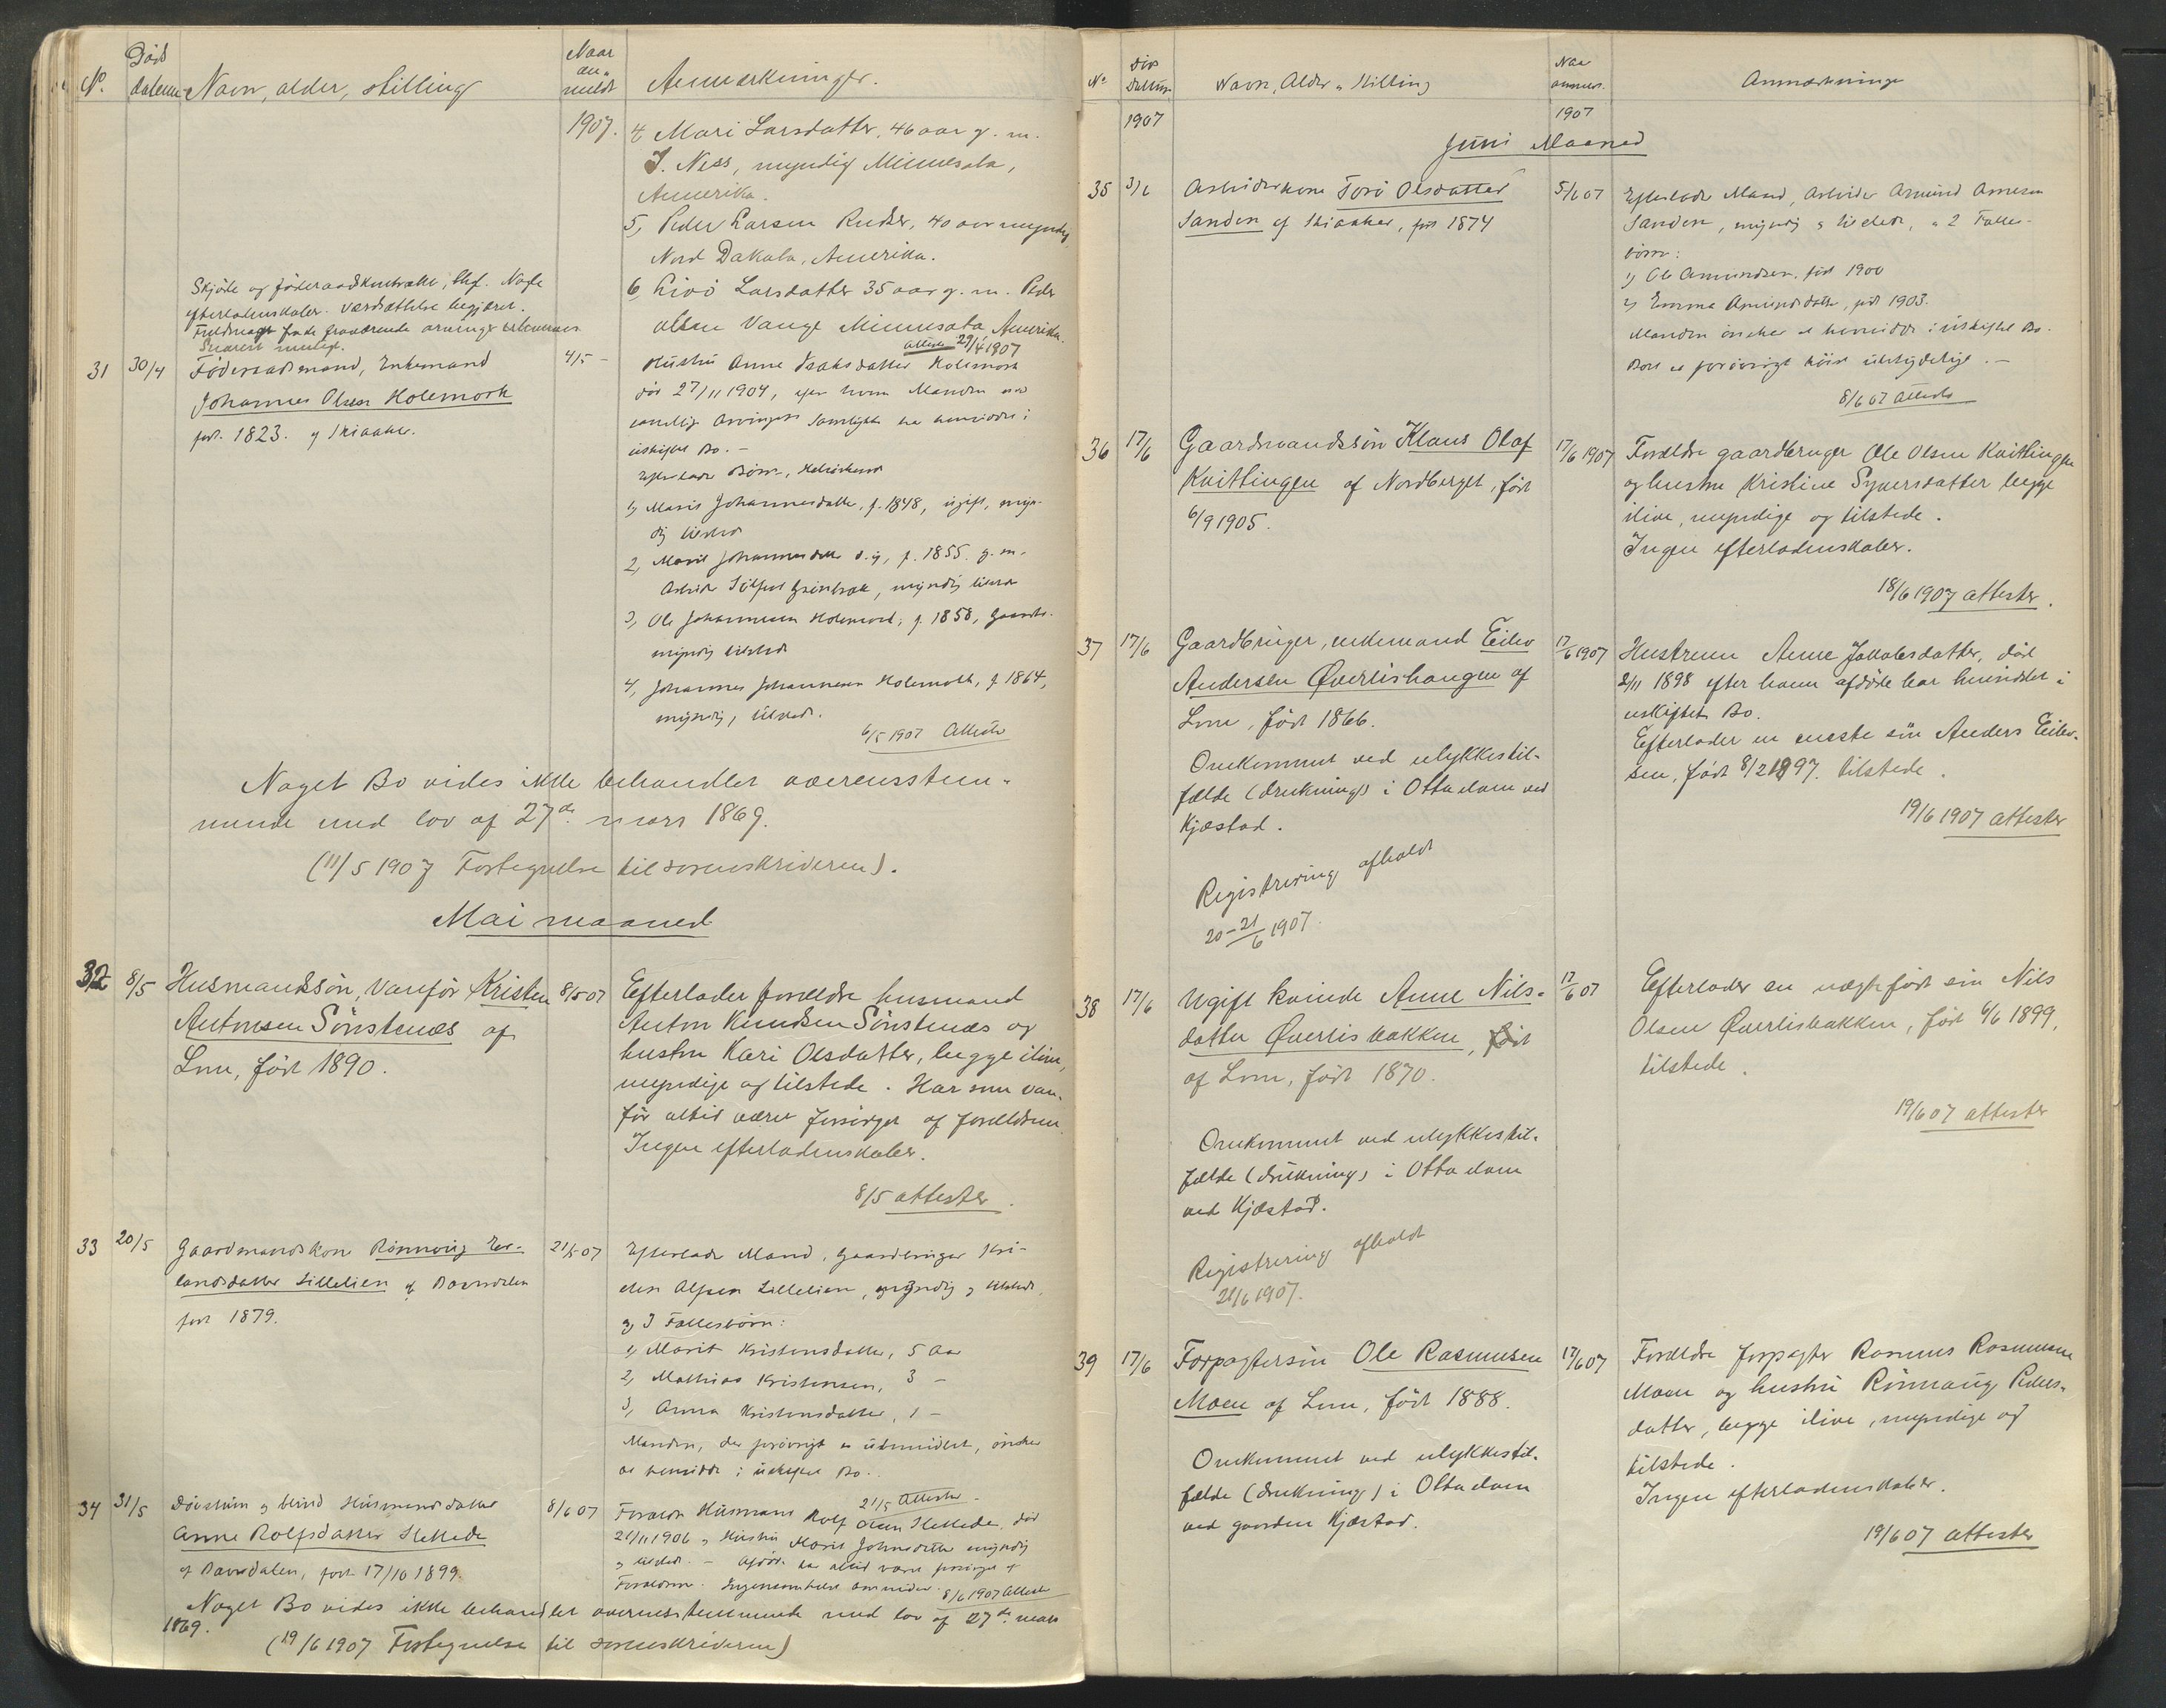 No.
Døds
datum
Navn, alder, stilling
Naar
an-
meldt
Anmærkninger.
1907.
4 Mari Larsdatter, 46 aar g. m.
J. Ness, myndig Minnesota,
Amerika.
5, Peder Larsen Ruder, 40 aar myndig
Nord Dakota, Amerika.
6, Livò Larsdatter 35 aar g. m. Peder
Olsen Vange Minnesota Amerika.
attester 29/4 1907
Skjöte og föderaadskontrakt, Nogle
efterladenskaber. Værdsættelse begjæret.
Fuldmagt fra de fraværende arvinger
Snarest muligt.
31
30/4
Föderaadsmand, Enkemand
Johannes Olsen Holemork
født. 1823. af Skiaaker.
4/5 –
Hustru Anne Isaksdatter Holemork
död 27/11 1904, efter hvem Manden med
samtlige Arvingers Samtykke har hensiddet i
uskiftet Bo. –
Efterlader Börn, Helsöskende
1) Marit Johannesdatter, f. 1848, ugift, myn-
dig tilstede
2, Marit Johannesdatter d. y, f. 1855. g. m.
Arbeider, myndig tilstede
3, Ole Johannesen Holemork, f. 1858, Gaardbr.
myndig tilstede
4, Johannes Johannesen Holemork, f 1864,
myndig, tilstede.
6/5 1907 Attester
Noget Bo vides ikke behandlet overensstem-
mende med lov af 27de mars 1869.
(11/5 1907 Fortegnelse til sorenskriveren).
Mai maaned
32
8/5
Husmandssön, vanför Kristen
Antonsen Sönstenæs af
Lom, født 1890.
8/5 07
Efterlader foreldre husmand
Anton Knudsen Sönstenæs og
hustru Kari Olsdatter, begge ilive,
myndige og tilstede. Har som van-
för altid været forsörget af foreldrene.
Ingen efterladenskaber.
8/5 attester.
33
20/5
Gaardmandskone Rönnoug Er-
landsdatter Lillelien af Bæverdalen
født 1879.
21/5 07
Efterlader Mand, Gaardbruger Kri-
sten Alfsen Lillelien, myndig og tilstede,
og 3 Fællesbörn:
1) Marit Kristensdatter, 5 Aar
2, Mathias Kristensen, 3 –
3, Anna Kristensdatter, 1 –
Manden, der forövrigt er ubemidlet, önsker
at hensidde i uskiftet Bo.
21/5 Attester.
34
31/5
Dövstum og blind Husmandsdatter
Anne Rolfsdatter Slettede
af Bæverdalen, født 17/10 1899.
8/6 07
Foreldre Husmand Rolf Olsen Slettede, död
21/11 1906 og Hustru Marit Johnsdatter myndig
og tilstede. – Afdöde har altid været forsörget af
Foreldrene. Ingensomhelst
8/6 1907 Attester
Noget Bo vides ikke behandlet overensstemmende med lov af 27de mars
1869.
(19/6 1907 Fortegnelse til sorenskriveren)
No
Döds
Datum
Navn, Alder, Stilling
Naar
anmeldt.
Anmærkninger
1907
1907
Juni Maaned
35
3/6
Arbeiderkone Torö Olsdatter
Sanden af Skiaaker, født 1874
5/6 07
Efterlader Mand, Arbeider Amund Arnesen
Sanden, myndig og tilstede, og 2 Fælles-
börn:
1) Ole Amundsen, født 1900
2) Emma Amundsdatter, født 1903.
Manden önsker at hensidde i uskiftet Bo.
Boet er forövrigt höist ubetydelig. –
8/6 07 attester
36
17/6
Gaardmandssön Klaus Olaf
Kvitlingen af Nordberget, født
6/9 1905.
17/6 1907
Foreldre gaardbruger Ole Olsen Kvitlingen
og hustru Kristine Syversdatter begge
ilive, myndige og tilstede.
Ingen efterladenskaber.
18/6 1907 attester.
37
17/6
Gaardbruger, enkemand Eilev
Andersen Øverlishaugen af
Lom, født 1866.
Omkommet ved ulykkestil-
fælde (drukning) i Otta elven ved
Kjæstad.
Registrering afholdt
20–21/6 1907.
17/6 1907
Hustruen Anne Jakobsdatter, död
2/11 1898 efter hvem afdöde har hensiddet i
uskiftet Bo.
Efterlader en eneste sön Anders Eilev-
sen, født 8/2 1897. tilstede.
19/6 1907 attester
38
17/6
Ugift kvinde Anne Nils-
datter Øverlisbakken, født
af Lom, født 1870.
Omkommet ved ulykkestil-
fælde (drukning) i Otta elven
ved Kjæstad.
Registrering afholdt
21/6 1907.
17/6 07
Efterlader en uægtefödt sön Nils
Olsen Øverlisbakken, født 4/6 1899,
tilstede.
19/6 07 attester
39
17/6
Forpagtersön Ole Rasmusen
Moen af Lom, født 1888.
Omkommet ved ulykkestil-
fælde (drukning) i Otta elven
ved gaarden Kjæstad.
17/6 07
Foreldre forpagter Rasmus Rasmusen
Moen og hustru Rönnaug Peders-
datter, begge ilive, myndige og
tilstede.
Ingen efterladenskaber.
19/6 07 attester